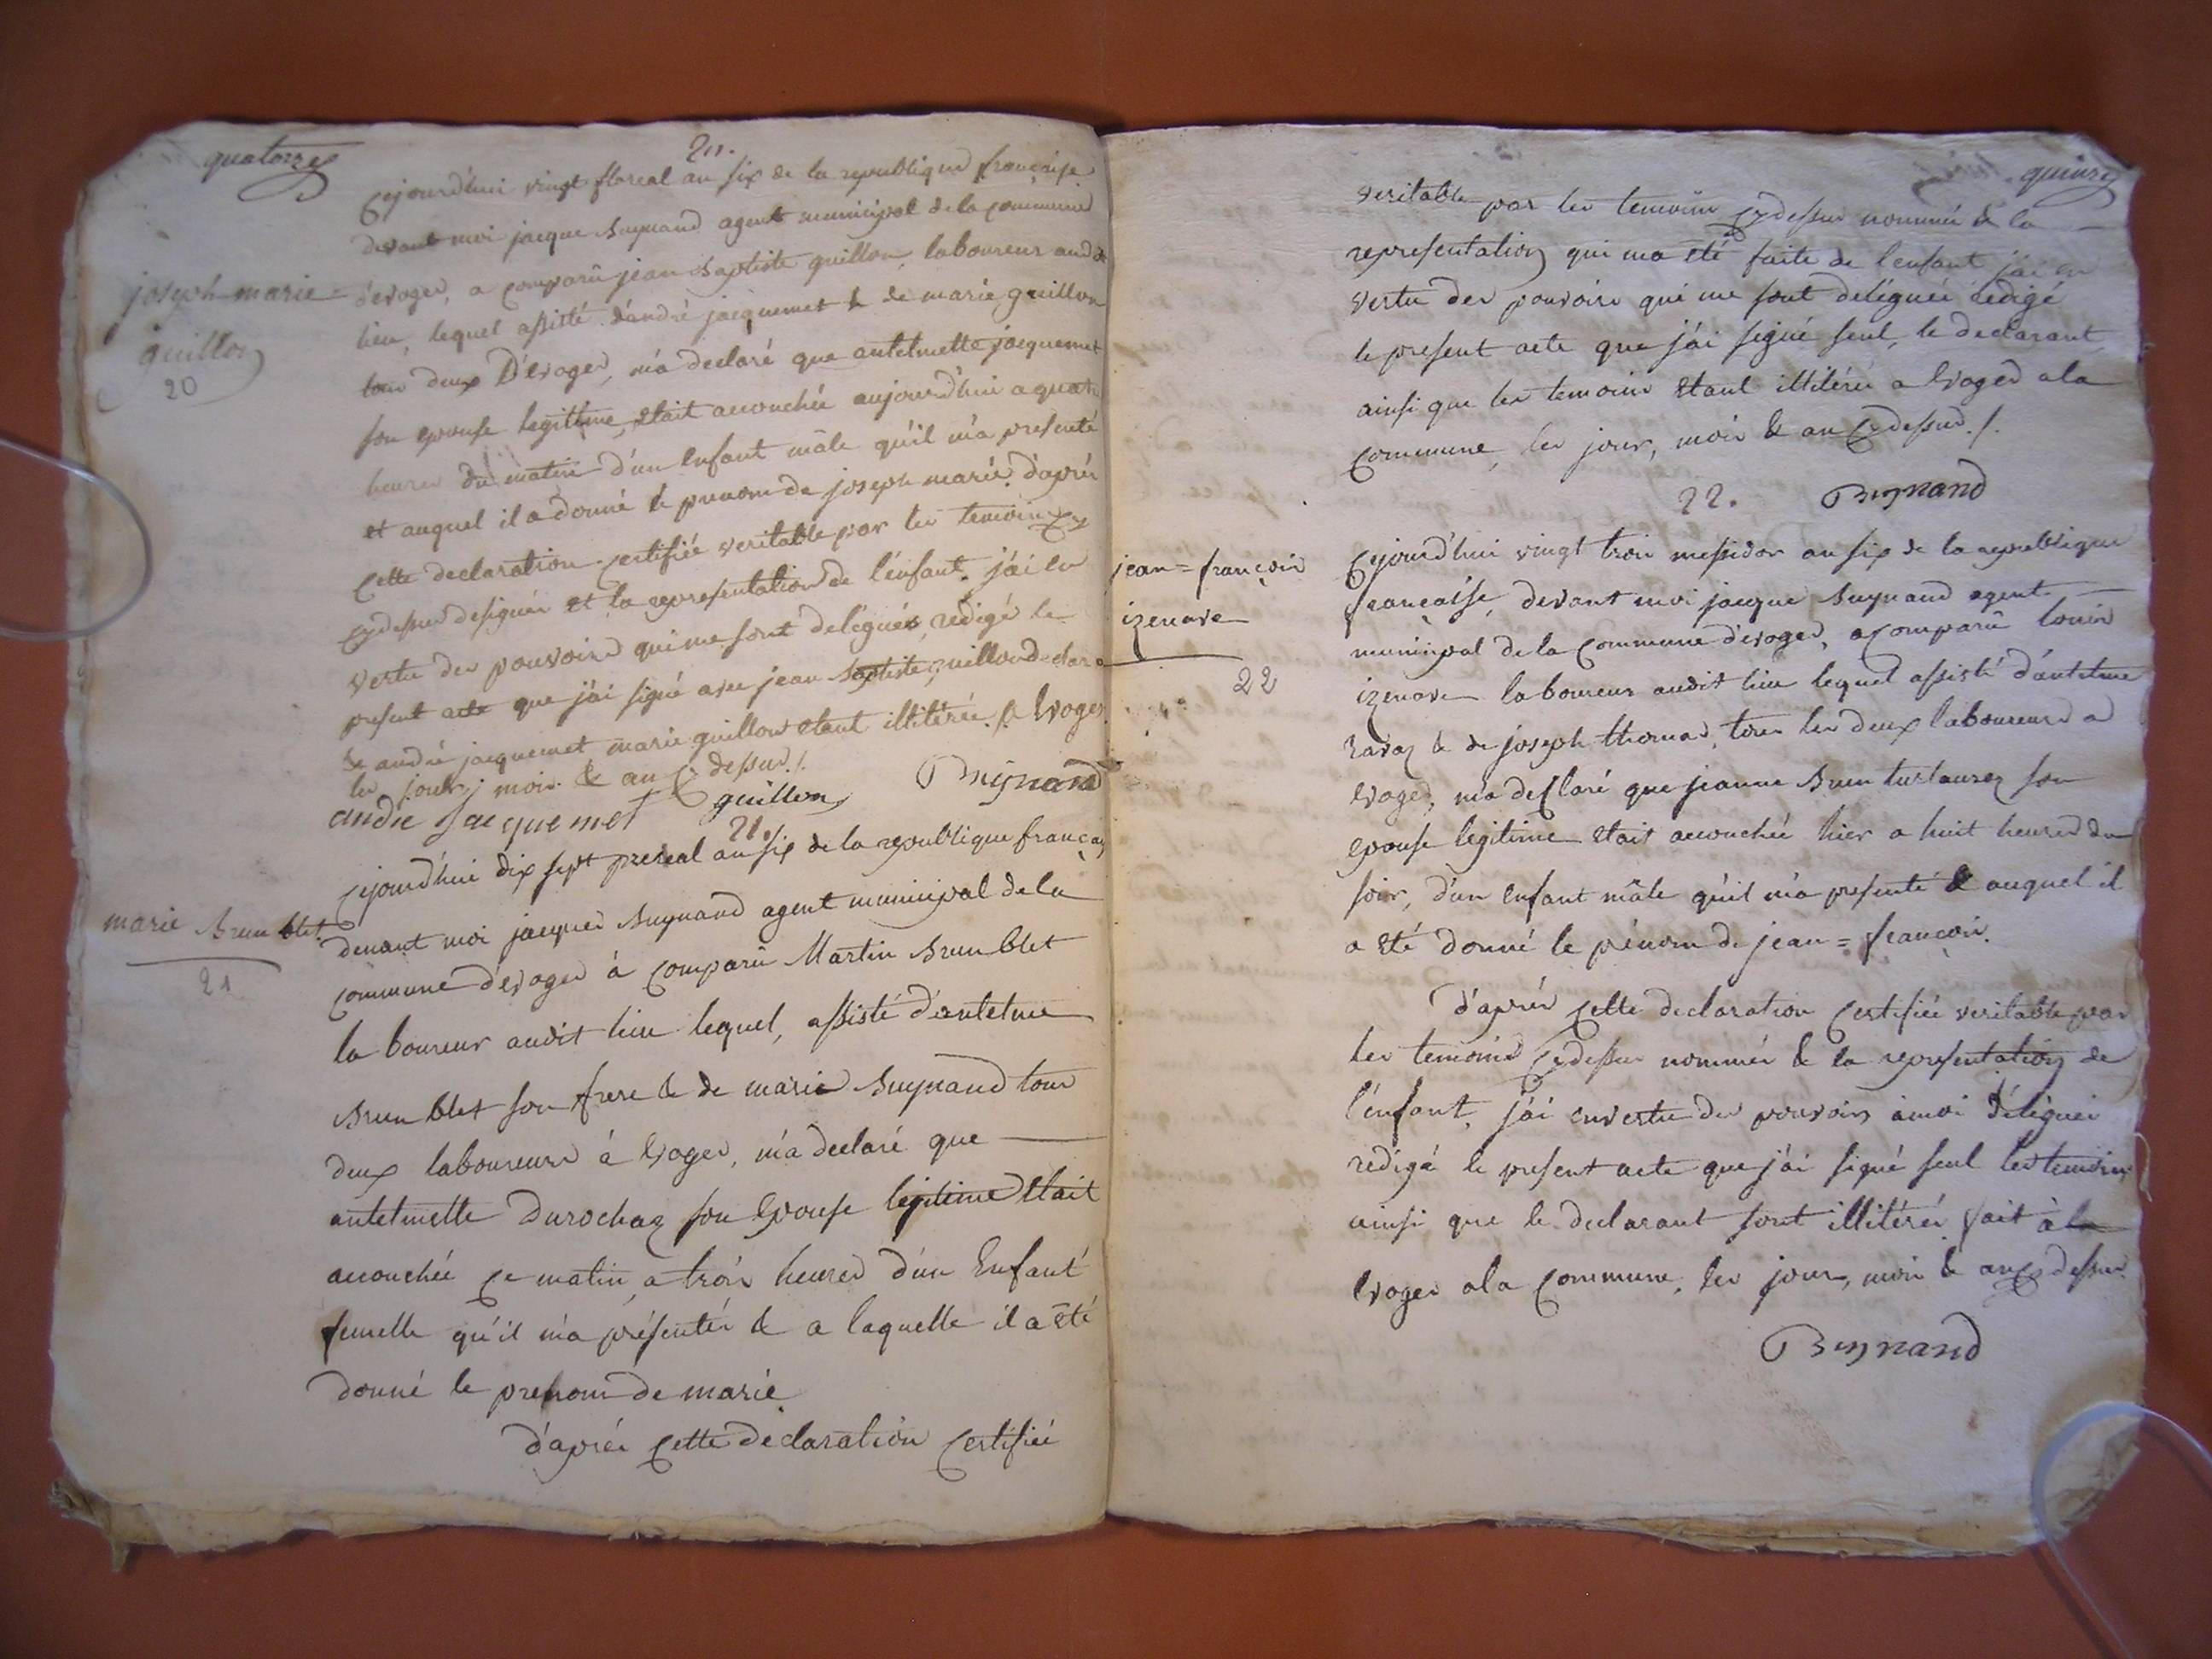 quatorze
20.
joseph-marie
guillon
20
Cejourd'hui vingt floreal an six de la republique française
devant moi jacque Buynand agent municipal de la commune
d'evoges, a comparû jean Baptiste guillon, laboureur aud dt
lieu, lequel assisté d'andré jacquemet & de marie guillon
tous deux D'Evoges, m'a declaré que antelmette jacquemet
son epouse legitime, etait accouchée aujourd'hui a quatre
heures du matin d'un enfant mâle qu'il m'a presenté
et auquel il a donné le prenom de joseph marie. d'après
Cette declaration certifiée veritable par les temoins Cy
Cydessus designés et la representation de l'enfant. j'ai en
vertu des pouvoirs qui me sont delegués, redigé le
present acte que j'ai signé avec jean Baptiste guillon declara
& andré jacquemet marie guillon etant illitérée. a Evoges
les jour, mois & an Cy dessus ./.
andre Jacquemet guillon Buynand
21.
marie Brun blet
21
Cejourd'hui dix sept prereal an six de la republique françai
devant moi jacques Buynand agent municipal de la
commune d'evoges à comparû Martin Brun blet
la boureur audit lieu lequel, assisté d'antelme
Brun blet son frere & de marie Buynand tous
deux laboureurs à Evoges, m'a declaré que
antelmette Durochaz son Epouse legitime Etait
accouchée ce matin, a trois heures d'un Enfant
femelle qu'il m'a présentér & a laquelle il a été
donné le prenom de marie.
d'après Cette declaration Certifiée
quinze
veritable par les temoins Cydessus nommés & la
representation qui ma été faite de l'enfant j'ai en
vertu des pouvoirs qui me sont delégués redigé
le present acte que j'ai signé seul, le declarant
ainsi que les temoins etant illitérés a Evoges a la
Commune, les jour, mois & an Cydessus ./.
Buynand
22.
jean=françois
izenave
22
Cejourd'hui vingt trois messidor an six de la republique
française, devant moi jacque Buynand agent
municipal de la Commune d'evoges, a Comparû louis
izenave laboureur audit lieu lequel assisté d'antelme
ravaz & de joseph thomas, tous les deux laboureurs a
Evoges, m'a declaré que jeanne Brun son
epouse legitime etait accouchée hier a huit heures du
soir, d'un enfant mâle qu'il m'a presenté & auquel il
a été donné le prénom de jean=françois.
d'après Cette declaration Certifiée veritable par
les temoins Cydessus nommés & la representation de
l'enfant, j'ai en vertu des pouvoirs à moi délégués
redigé le present acte que j'ai signé seul les temoins
ainsi que le declarant sont illitérés, fait à la
Evoges a la Commune, les jour, mois & an Cydessus.
Buynand